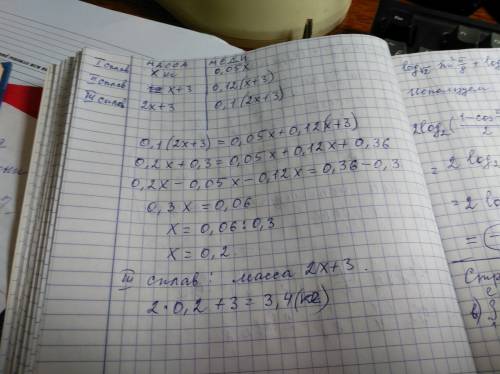 масса меди
I сплав x кг 0,05x
II сплав x+3 0,12(x+3)
III сплав 2x+3 0,1(2x+3)
0,1(2x+3)=0,05x+0,12(x+3)
0,2x+0,3=0,05x+0,12x+0,36
0,2x-0,05x-0,12x=0,36-0,3
0,3x=0,06
x=0,06:0,3
x=0,2
III сплав: масса 2x+3.
2·0,2+3=3,4(кг)
Используем
= 2 log
= 2 lo
= (-
Стр